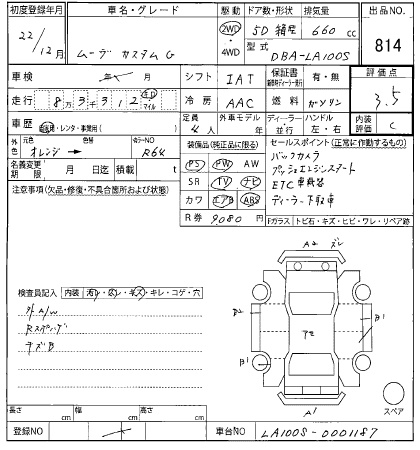 初度登録年月 車名・グレード 駆動 ドア数・形状 排気量 出品NO.
22/12月 ムーヴ カスタム G 2WD・4WD 5D 箱型 660 cc 814
型式 DBA-LA100S
車検 年 月 シフト IAT 保証書 有・無 評価点
走行 8万5千312 km マイル 冷房 AAC 燃料 ガソリン 3.5
車歴 自家用・レンタ・事業用( ) 定員 4人 外車モデル 年 ディーラー 並行 ハンドル 左・右 内装評価 C
外色 元色 オレンジ → 色替 カラーNO R64
装備品(純正品に限る) セールスポイント(正常に作動するもの)
名義変更期限 月 日迄 積載 t
PS PW AW バックカメラ
注意事項(欠品・修復・不具合箇所および状態) SR TV ナビ プッシュエンジンスタート
カワ エアB ABS ETC車載器
R券 9080 円 ディーラー下取車
Fガラス トビ石・キズ・ヒビ・ワレ・リペア跡
A2
検査員記入 内装 汚レ・スレ・キズ・キレ・コゲ・穴
外A/W
キズB
B1
B1
A2
A1
スペア
長さ cm 幅 cm 高さ cm
登録NO 車台NO LA100S-0001187